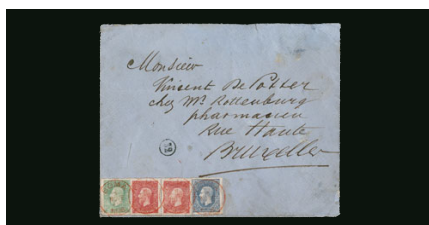 Monsieur
Vincent De Potter
chez Mr. Rottenburg
pharmacien
Rue Haute
Bruxelles